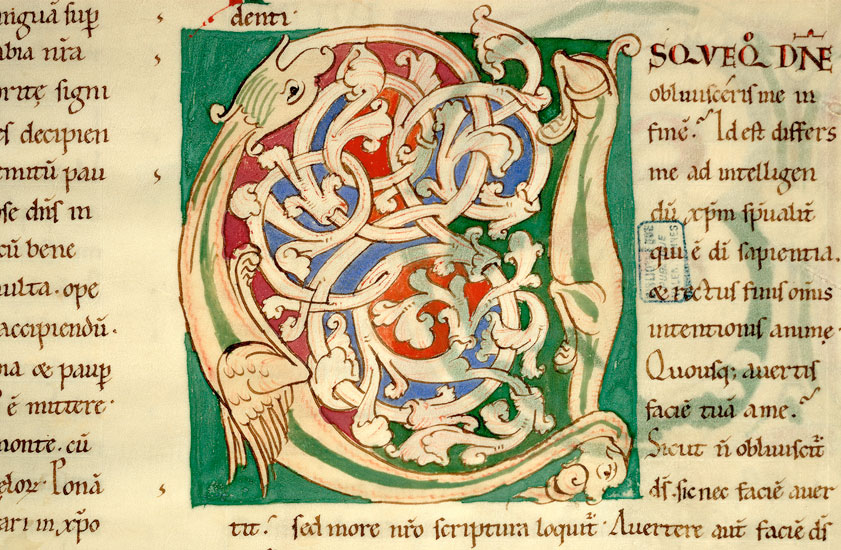 niguã sup
abia nr̃a
oritę signi
es decipien
mitũ pau
ose dñs in
cũ bene
ulta. ope
accipiendũ.
na & paup
ẽ mittere
monte. cũ
Ponã
ari in xp̃o
denti
USQVEQ̊ DÑE
oblivisceris me in
finẽ. Id est differs
me ad intelligen
dũ xp̃m sp̃ualit̃
qui ẽ dĩ sapientia.
& rectus finis om̃is
intentionis animę.
Quousq; avertis
faciẽ tuã a me.
Sicut ñ obliviscit̃
dš. sic nec faciẽ aver
tit. sed more nr̃o scriptura loquit̃. Avertere aut̃ faciẽ dš